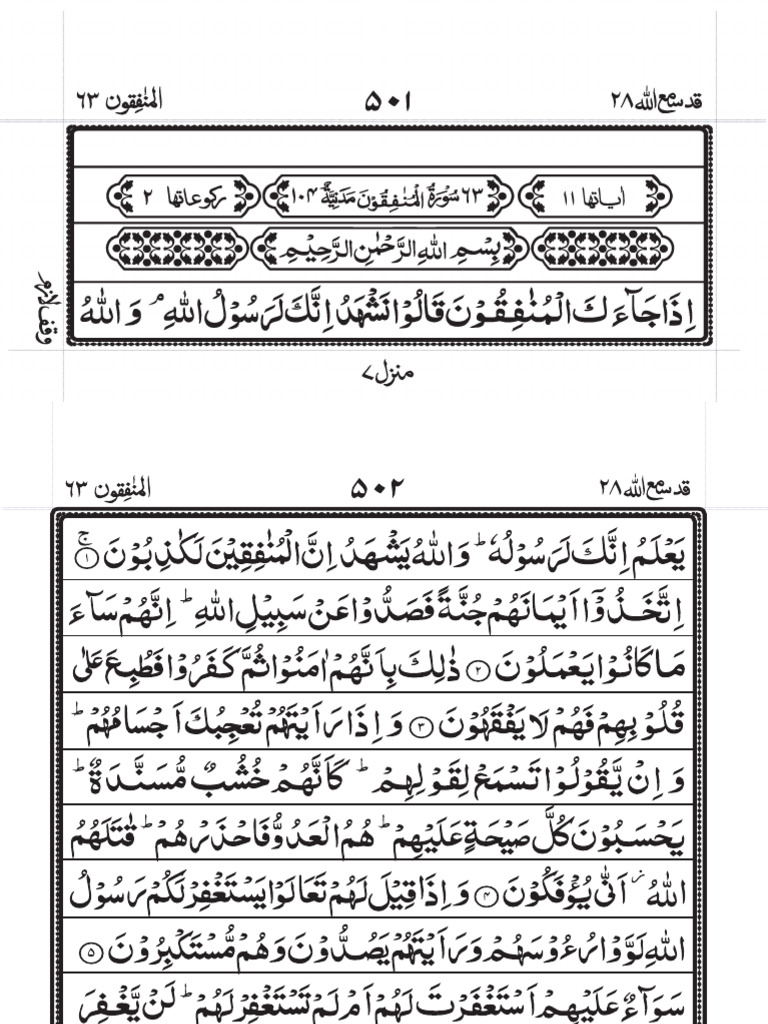 قد سمع الله ٢٨ ٥٠١ المنٰفقون ٦٣
اٰياتها ١١ ٦٣ سُوْرَةُ الْمُنٰفِقُوْنَ مَدَنِيَّةٌ ١٠٤ ركوعاتها ٢
بِسْمِ اللهِ الرَّحْمٰنِ الرَّحِيْمِ
اِذَا جَآءَكَ الْمُنٰفِقُوْنَ قَالُوْا نَشْهَدُ اِنَّكَ لَرَسُوْلُ اللهِ ۘ وَ اللهُ
وقف لازم
منزل ٧
قد سمع الله ٢٨ ٥٠٢ المنٰفقون ٦٣
يَعْلَمُ اِنَّكَ لَرَسُوْلُهٗ ؕ وَ اللهُ يَشْهَدُ اِنَّ الْمُنٰفِقِيْنَ لَكٰذِبُوْنَ ۚ ۝١
اِتَّخَذُوْۤا اَيْمَانَهُمْ جُنَّةً فَصَدُّوْا عَنْ سَبِيْلِ اللهِ ؕ اِنَّهُمْ سَآءَ
مَا كَانُوْا يَعْمَلُوْنَ ۝٢ ذٰلِكَ بِاَنَّهُمْ اٰمَنُوْا ثُمَّ كَفَرُوْا فَطُبِعَ عَلٰى
قُلُوْبِهِمْ فَهُمْ لَا يَفْقَهُوْنَ ۝٣ وَ اِذَا رَاَيْتَهُمْ تُعْجِبُكَ اَجْسَامُهُمْ ؕ
وَ اِنْ يَّقُوْلُوْا تَسْمَعْ لِقَوْلِهِمْ ؕ كَاَنَّهُمْ خُشُبٌ مُّسَنَّدَةٌ ؕ
يَحْسَبُوْنَ كُلَّ صَيْحَةٍ عَلَيْهِمْ ؕ هُمُ الْعَدُوُّ فَاحْذَرْهُمْ ؕ قٰتَلَهُمُ
اللهُ ؗ اَنّٰى يُؤْفَكُوْنَ ۝٤ وَ اِذَا قِيْلَ لَهُمْ تَعَالَوْا يَسْتَغْفِرْ لَكُمْ رَسُوْلُ
اللهِ لَوَّوْا رُءُوْسَهُمْ وَ رَاَيْتَهُمْ يَصُدُّوْنَ وَ هُمْ مُّسْتَكْبِرُوْنَ ۝٥
سَوَآءٌ عَلَيْهِمْ اَسْتَغْفَرْتَ لَهُمْ اَمْ لَمْ تَسْتَغْفِرْ لَهُمْ ؕ لَنْ يَّغْفِرَ